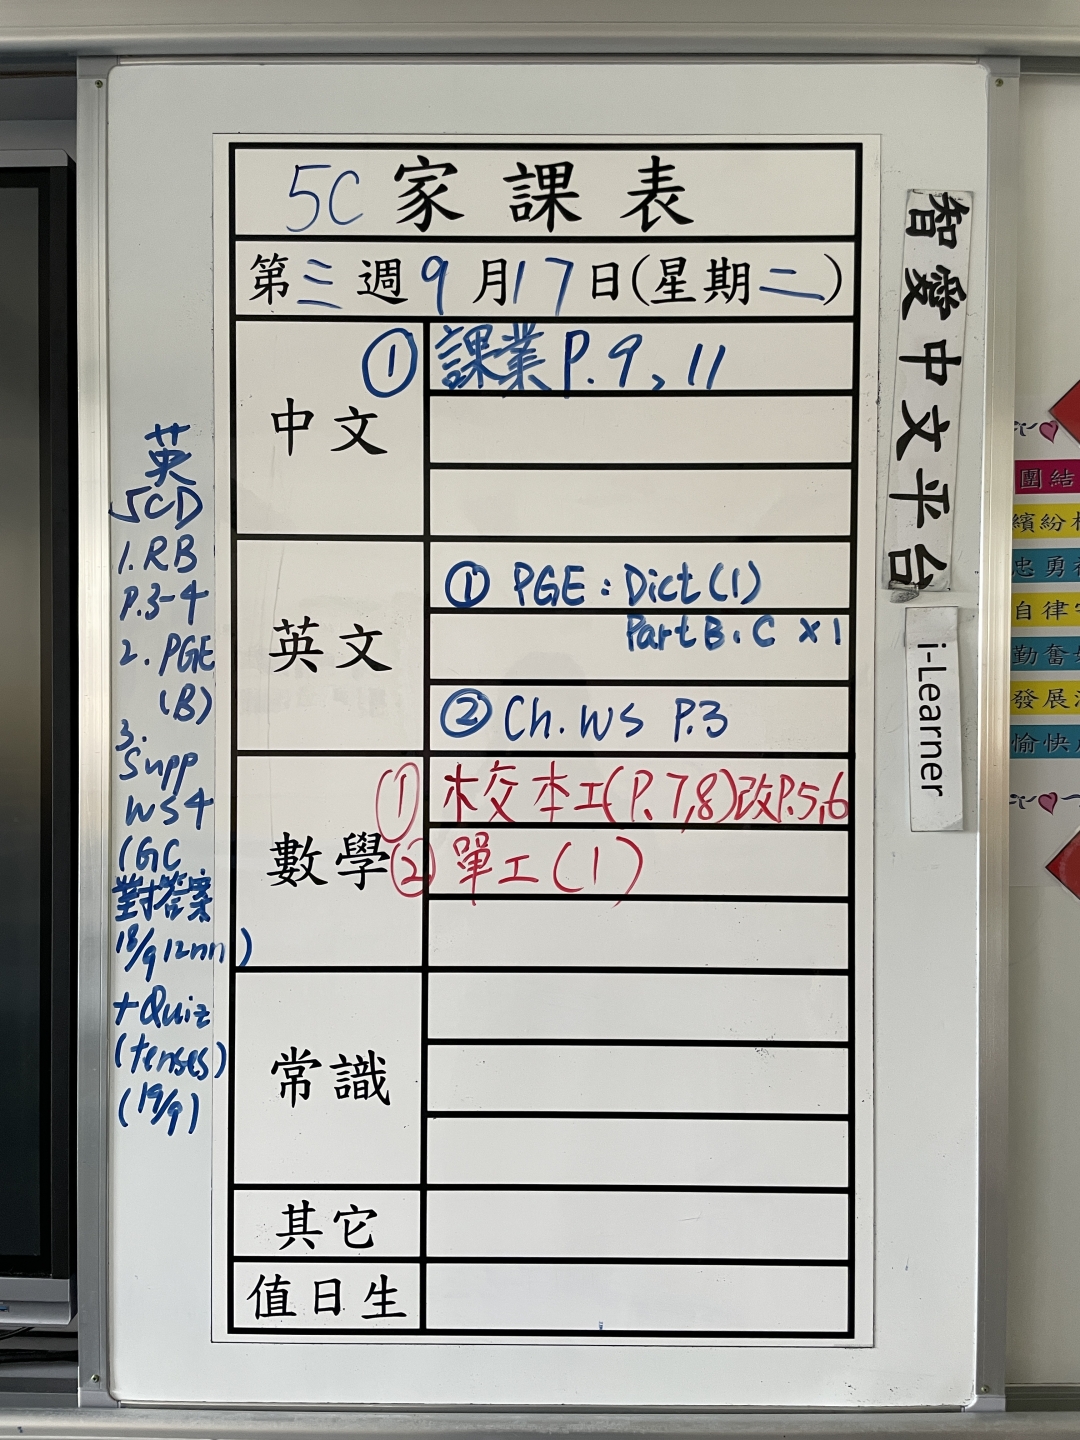 5C 家課表
第三週9月17日(星期二)
中文
① 課業 P.9, 11
英文
① PGE : Dict (1)
Part B. C x 1
② Ch. WS P.3
數學
① 校本工(P.7,8)改P.5,6
② 單工(1)
常識
其它
值日生
英
5CD
1. RB
P.3-4
2. PGE
(B)
3.
Supp
WS4
(GC
對答案
18/9 12nn)
+Quiz
(tenses)
(19/9)
智愛中文平台
i-Learner
團結
繽紛
忠勇
自律
勤奮
發展
愉快